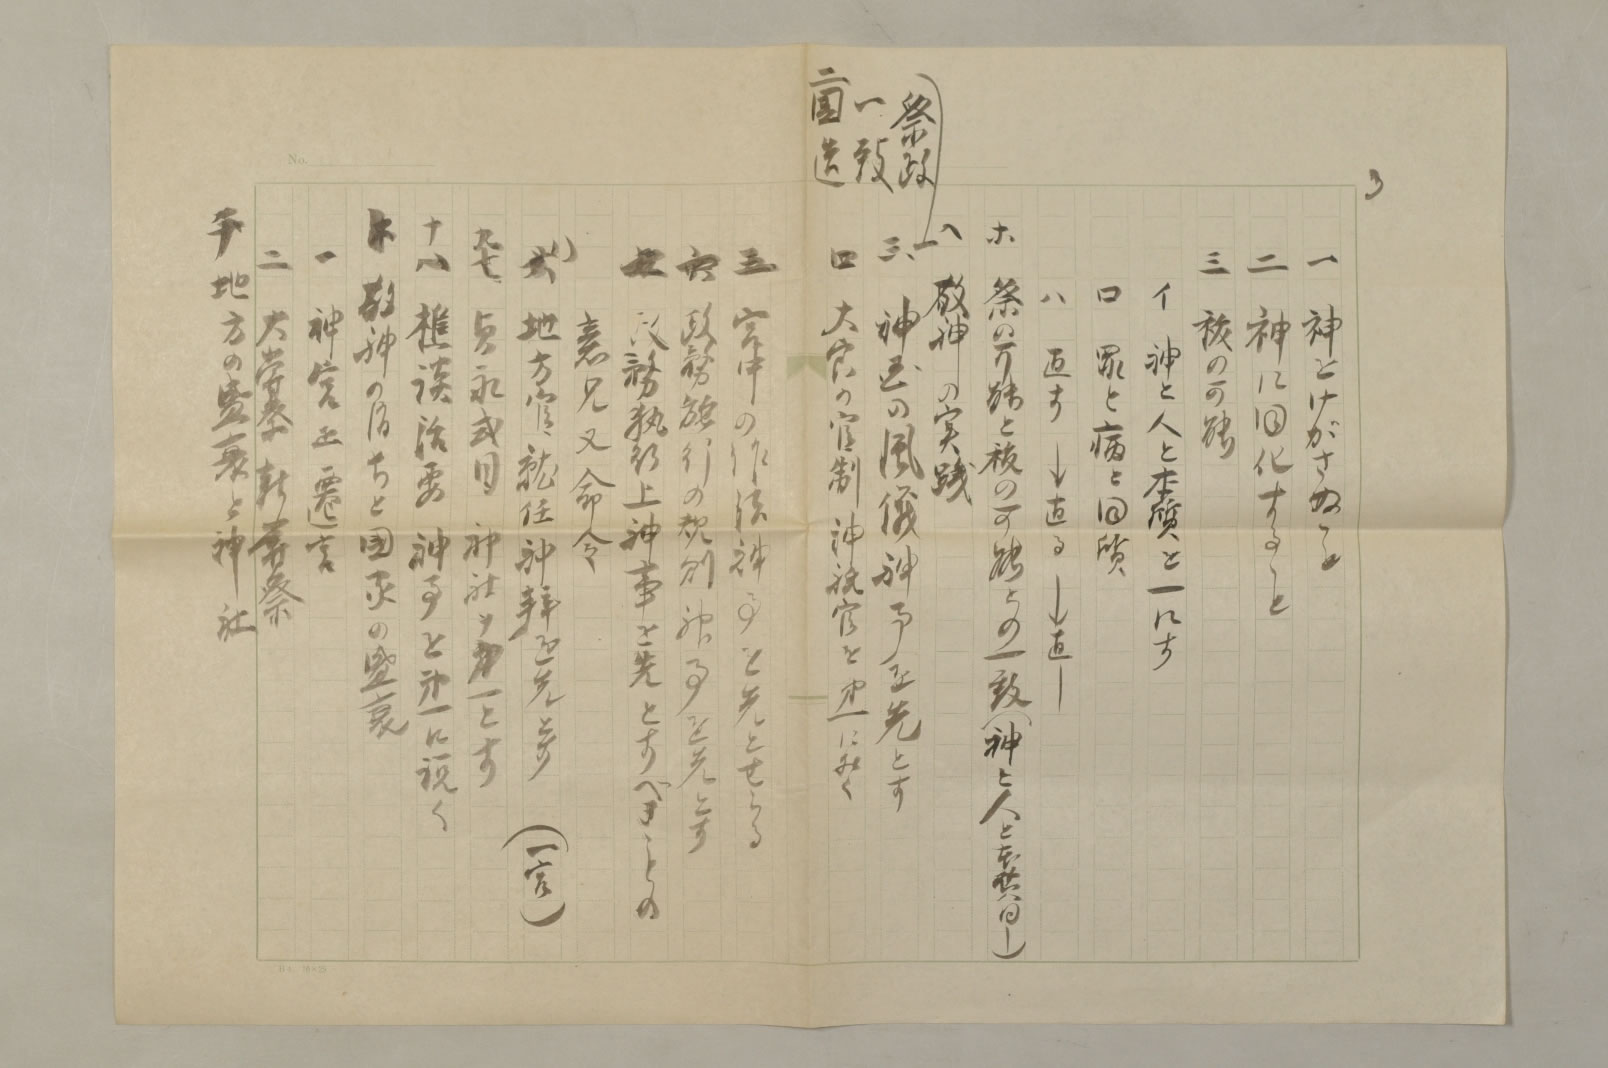 3
一 神をけがさぬこと
二 神に同化すること
三 祓の可能
イ 神と人と本質を一にす
ロ 罪と病と同質
ハ 直す→直る→直一
ホ 祭の可能と祓の可能との一致(神と人と本質同一)
八 敬神の実践
祭政
一致
二 国造
一
三、神宮の風儀神事を先とす
ロ 大宝の官制 神祇官を第一に置く
五 宮中の作法神事を先とせらる
六 政務施行の規則 神事を先とす
政務執行上神事を先とすべきことの
意見又命令
地方官就任神拝を先とす (一宮)
七 貞永式目 神社を第一とす
十 八 樵談治要 神事を第一に説く
敬神の消長と国家の盛衰
一 神宮正遷宮
二 大嘗祭 新嘗祭
地方の盛衰と神社
No.
B4 20×25